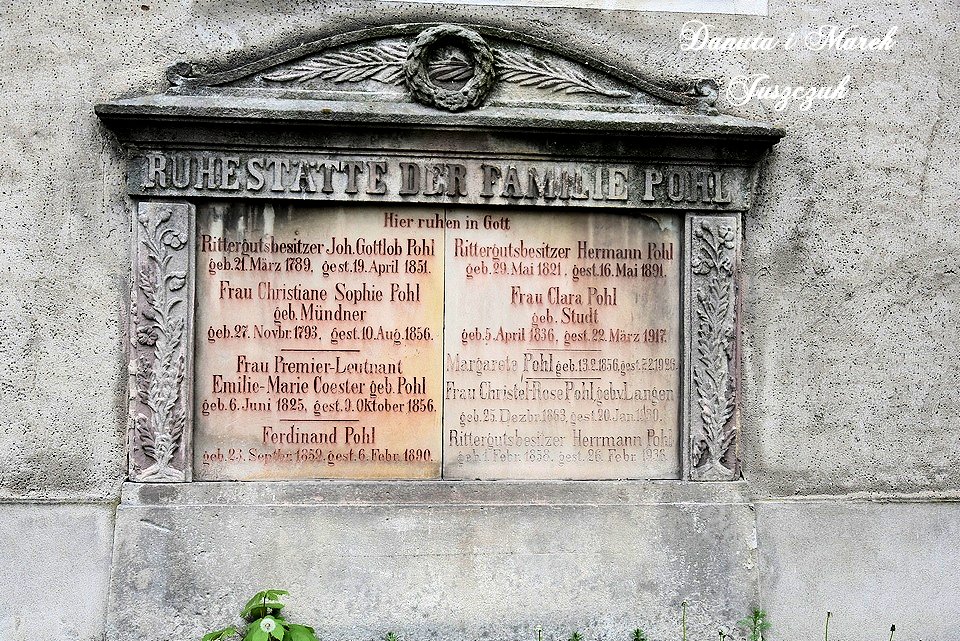 Danuta i Marek
Juszczuk
RUHESTÄTTE DER FAMILIE POHL
Hier ruhen in Gott
Rittergutsbesitzer Joh. Gottlob Pohl
geb. 21. März 1789, gest. 19. April 1851.
Frau Christiane Sophie Pohl
geb. Mündner
geb. 27. Novbr. 1793, gest. 10. Aug. 1856.
Frau Premier-Leutnant
Emilie-Marie Coester geb. Pohl
geb. 6. Juni 1825, gest. 9. Oktober 1856.
Ferdinand Pohl
geb. 23. Septbr. 1859, gest. 6. Febr. 1890.
Rittergutsbesitzer Hermann Pohl
geb. 29. Mai 1821, gest. 16. Mai 1891.
Frau Clara Pohl
geb. Studt
geb. 5. April 1836, gest. 22. März 1917.
Margarete Pohl geb. 13.2.1856, gest. 7.2.1926.
Frau Christel Rose Pohl geb. v. Langen
geb. 25. Dezbr. 1863, gest. 20. Jan.
Rittergutsbesitzer Herrmann Pohl
geb. 1. Febr. 1858, gest. 26. Febr. 1938.